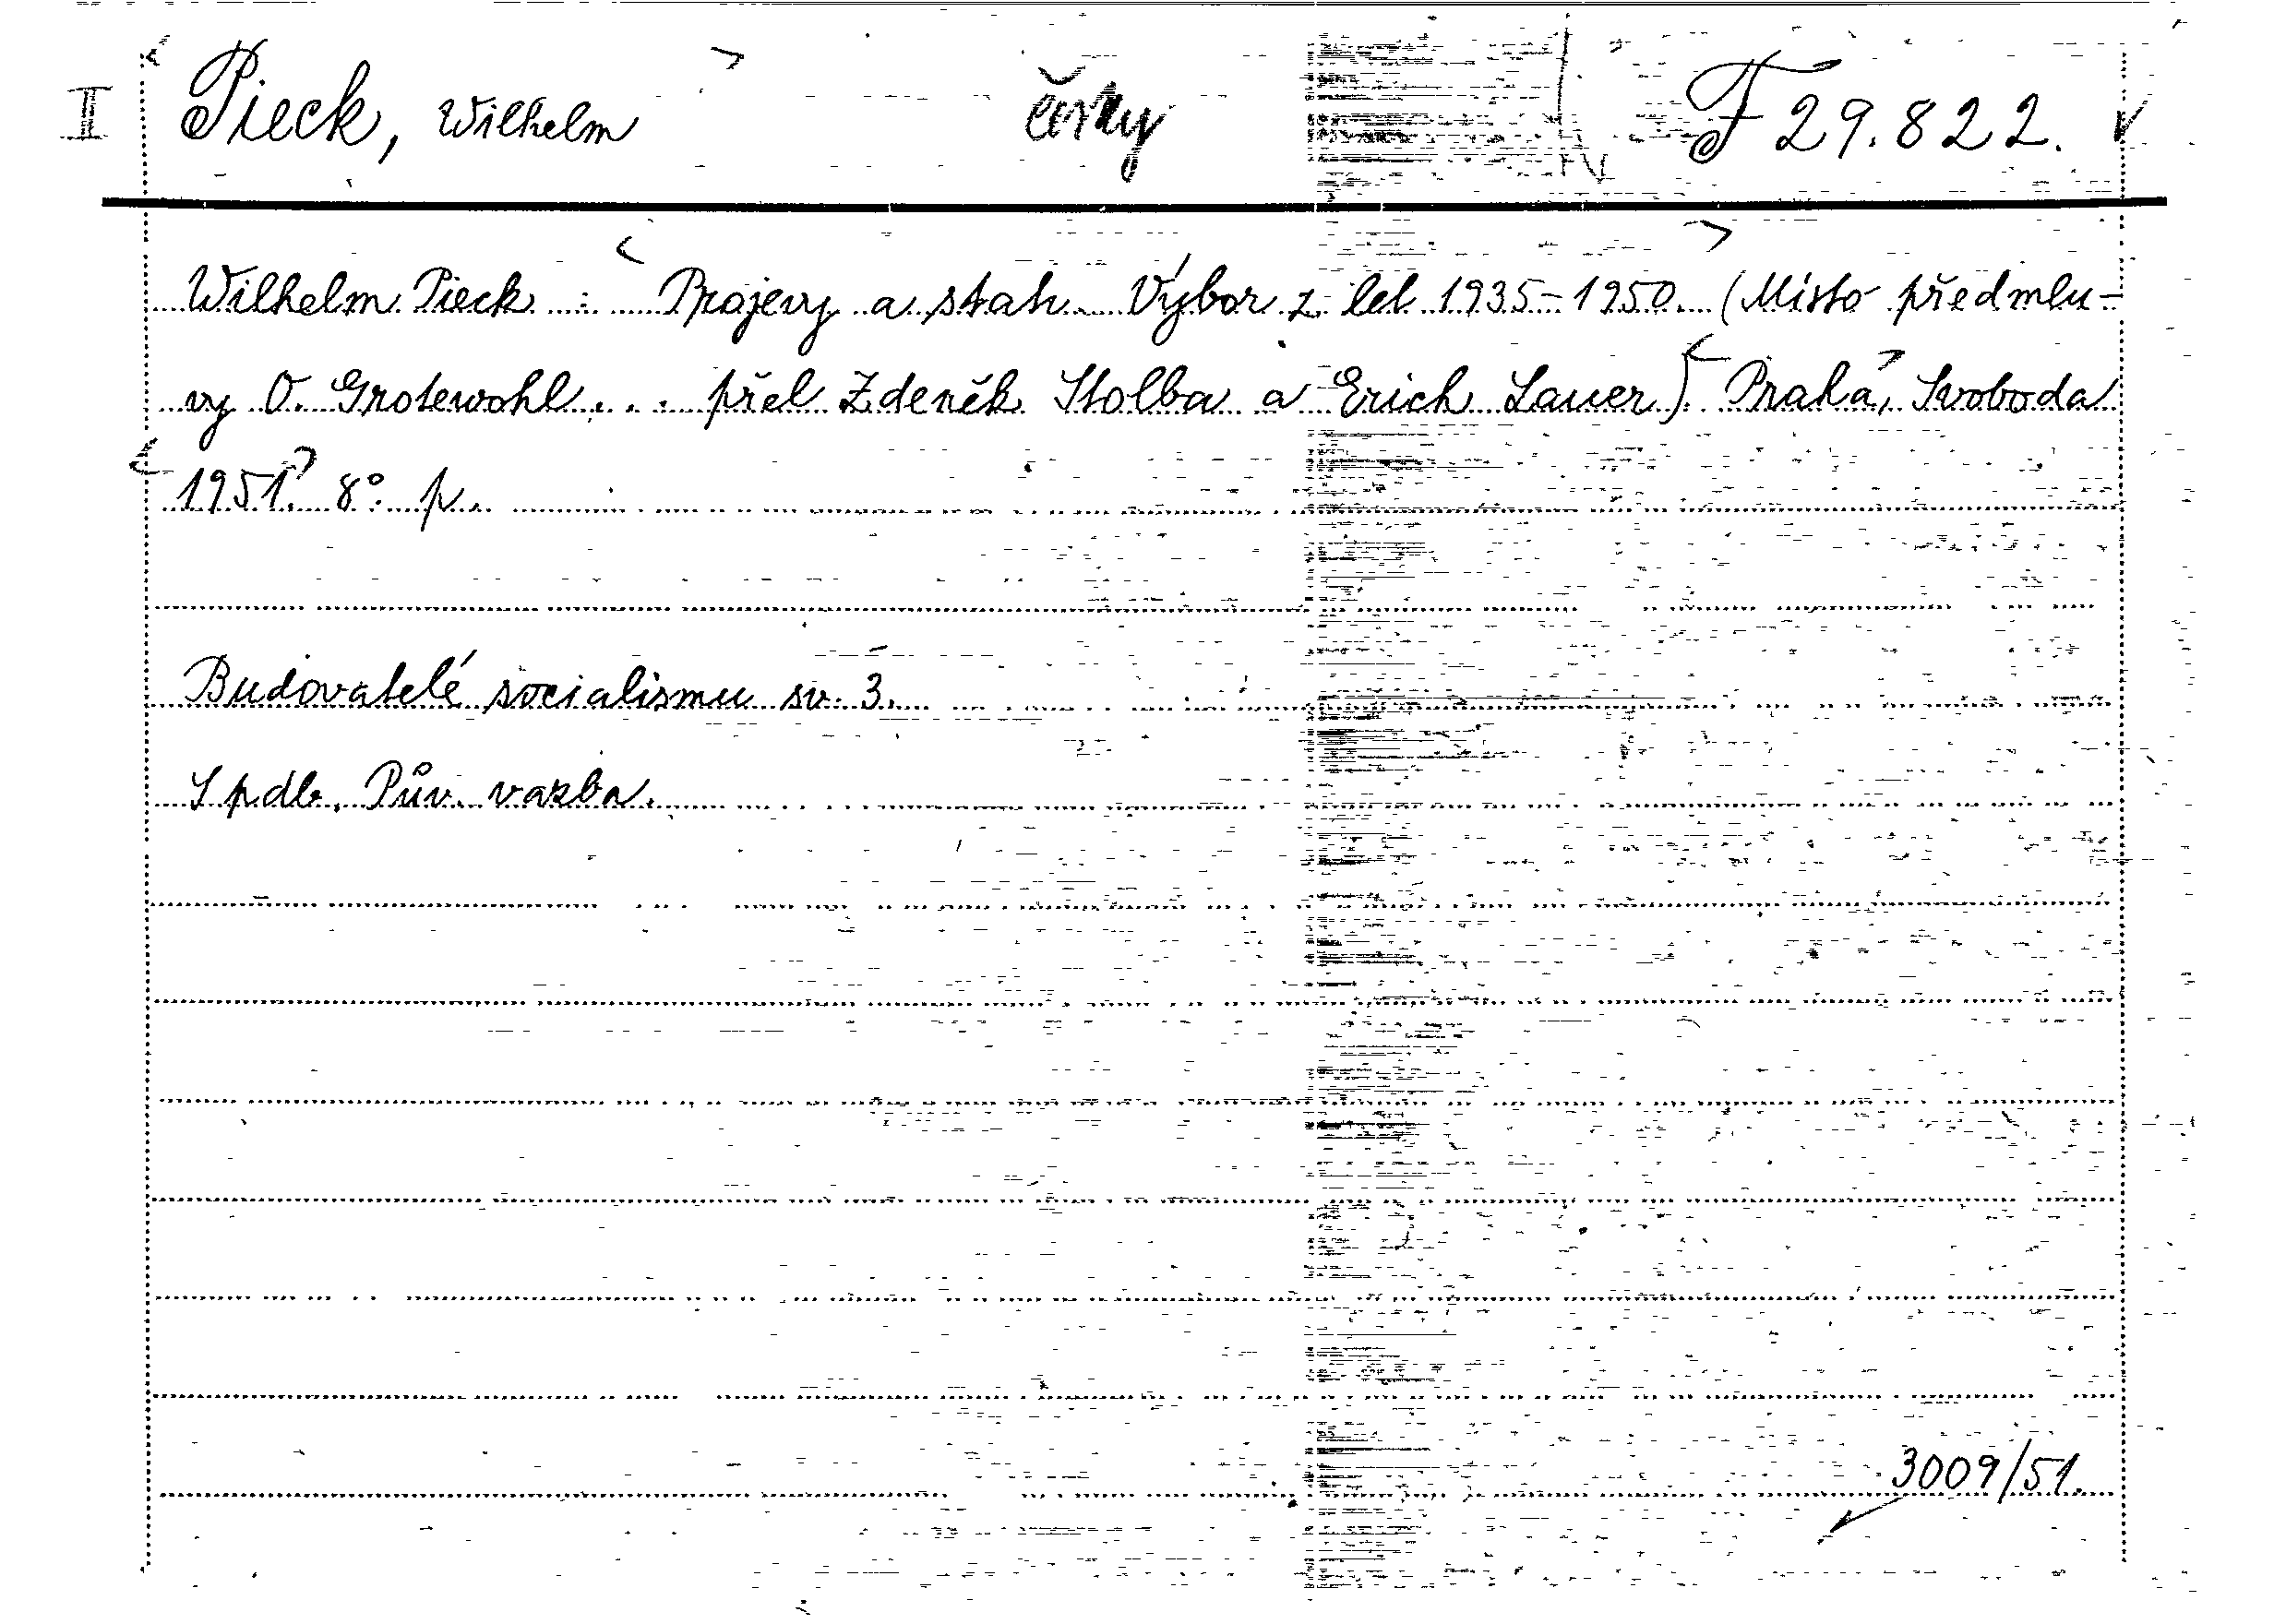 I Pieck, Wilhelm česky F 29.822.
Wilhelm Pieck : Projevy a stati. Výbor z let 1935-1950. (Místo předmlu-
vy O. Grotewohl... přel Zdeněk Stolba a Erich Lauer). Praha, Svoboda
1951. 8°. p.
Budovatelé socialismu sv. 3.
S pdb. Pův. vazba.
3009/51.